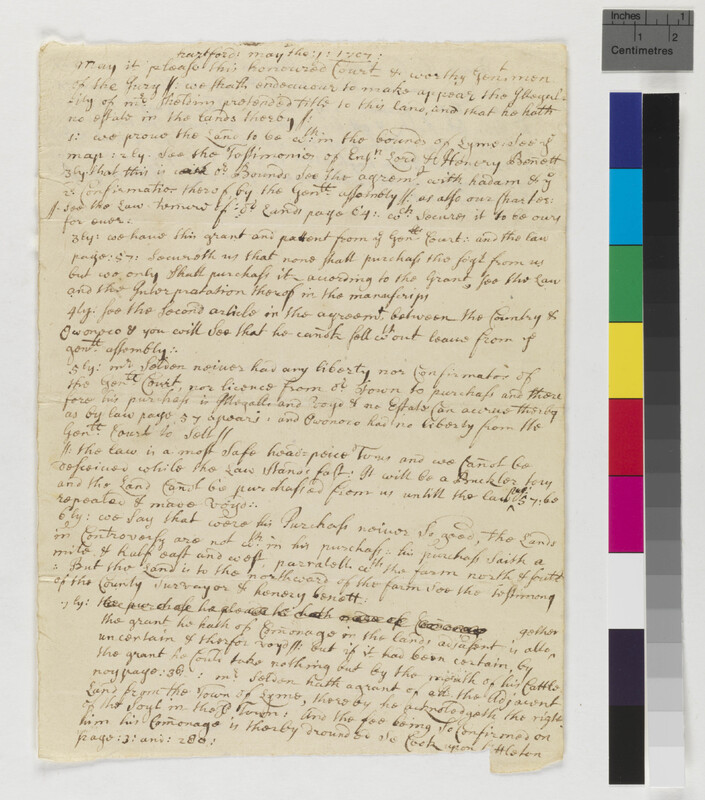 hartford: may the: 1: 1707:
May it please this honoured Court & worthy Gentlmen
of the Jury //: we shall endeavour to make appear the Illegal-
lity of mr Sheldins pretended title to this land, and that he hath
no estate in the lands thereby //:
1: we prove the Land to be wth in the bounds of Lyme. See ye
map: 2ly. See the Testimonies of Ensn Lord & Henery Bennett
3ly that this is our Bounds See the agremt with hadam & ye
Confirmation therof by the Genll assembly //: as also our Charter:
//: See the Law tenure of Lands page 64: wch Secures it to be ours
for ever:
3ly: we have this grant and pattent from ye Genll Court: and the law
page: 57: Secureth us that none shall purchass the from us
but we only Shall purchass it acording to the Grant, See the Law
and the Interpratation therof in the manuscrips
4ly. See the Second article in the agreemt between the Country &
Owoneco & you will See that he canot sell wth out leave from ye
genll assembly:
5ly: mr Selden neiver had any liberty nor Confirmation of
the Genll Court, nor licence from or Town to purchass and there
fore his purchass is Illegall and voyd & no Estate Can accrue thereby
as by law page 57 apears: and Owoneco had no liberty from the
Genll Court to Sell //
//: the law is a most Safe head=peice to us and we Canot be
deseived while the Law Stands fast: It will be a Buckler to us
and the Land Canot be purchassed from us untill the law pag: 57: be
repealed & made voyd:
6ly: we Say that were his Purchass neiver So good, the Lands
in Controversy are not wth in his purchass: his purchass Saith a
mile & half east and west, parralell wth the farm north & south
: But the Land is to the northward of the farm See the testimony
of the County Survayor & henery benett:
7ly: the purchase he hath Comonage gether
the grant he hath of Comonage in the lands adjasent is alto^
uncertain & therfor voyd //: but if it had been certain, by
the grant he Could take nothing but by the mouth of his Cattle
page: 36: : mr Selden hath a grant of all the Adjacent
Land from the Town of Lyme, thereby he acknoledgeth the right
of the Soyl in the Town: And the fee being So Confirmed on
him his Comonage is therby drounded Se Cock upon Littleton
page: 3: and: 280: